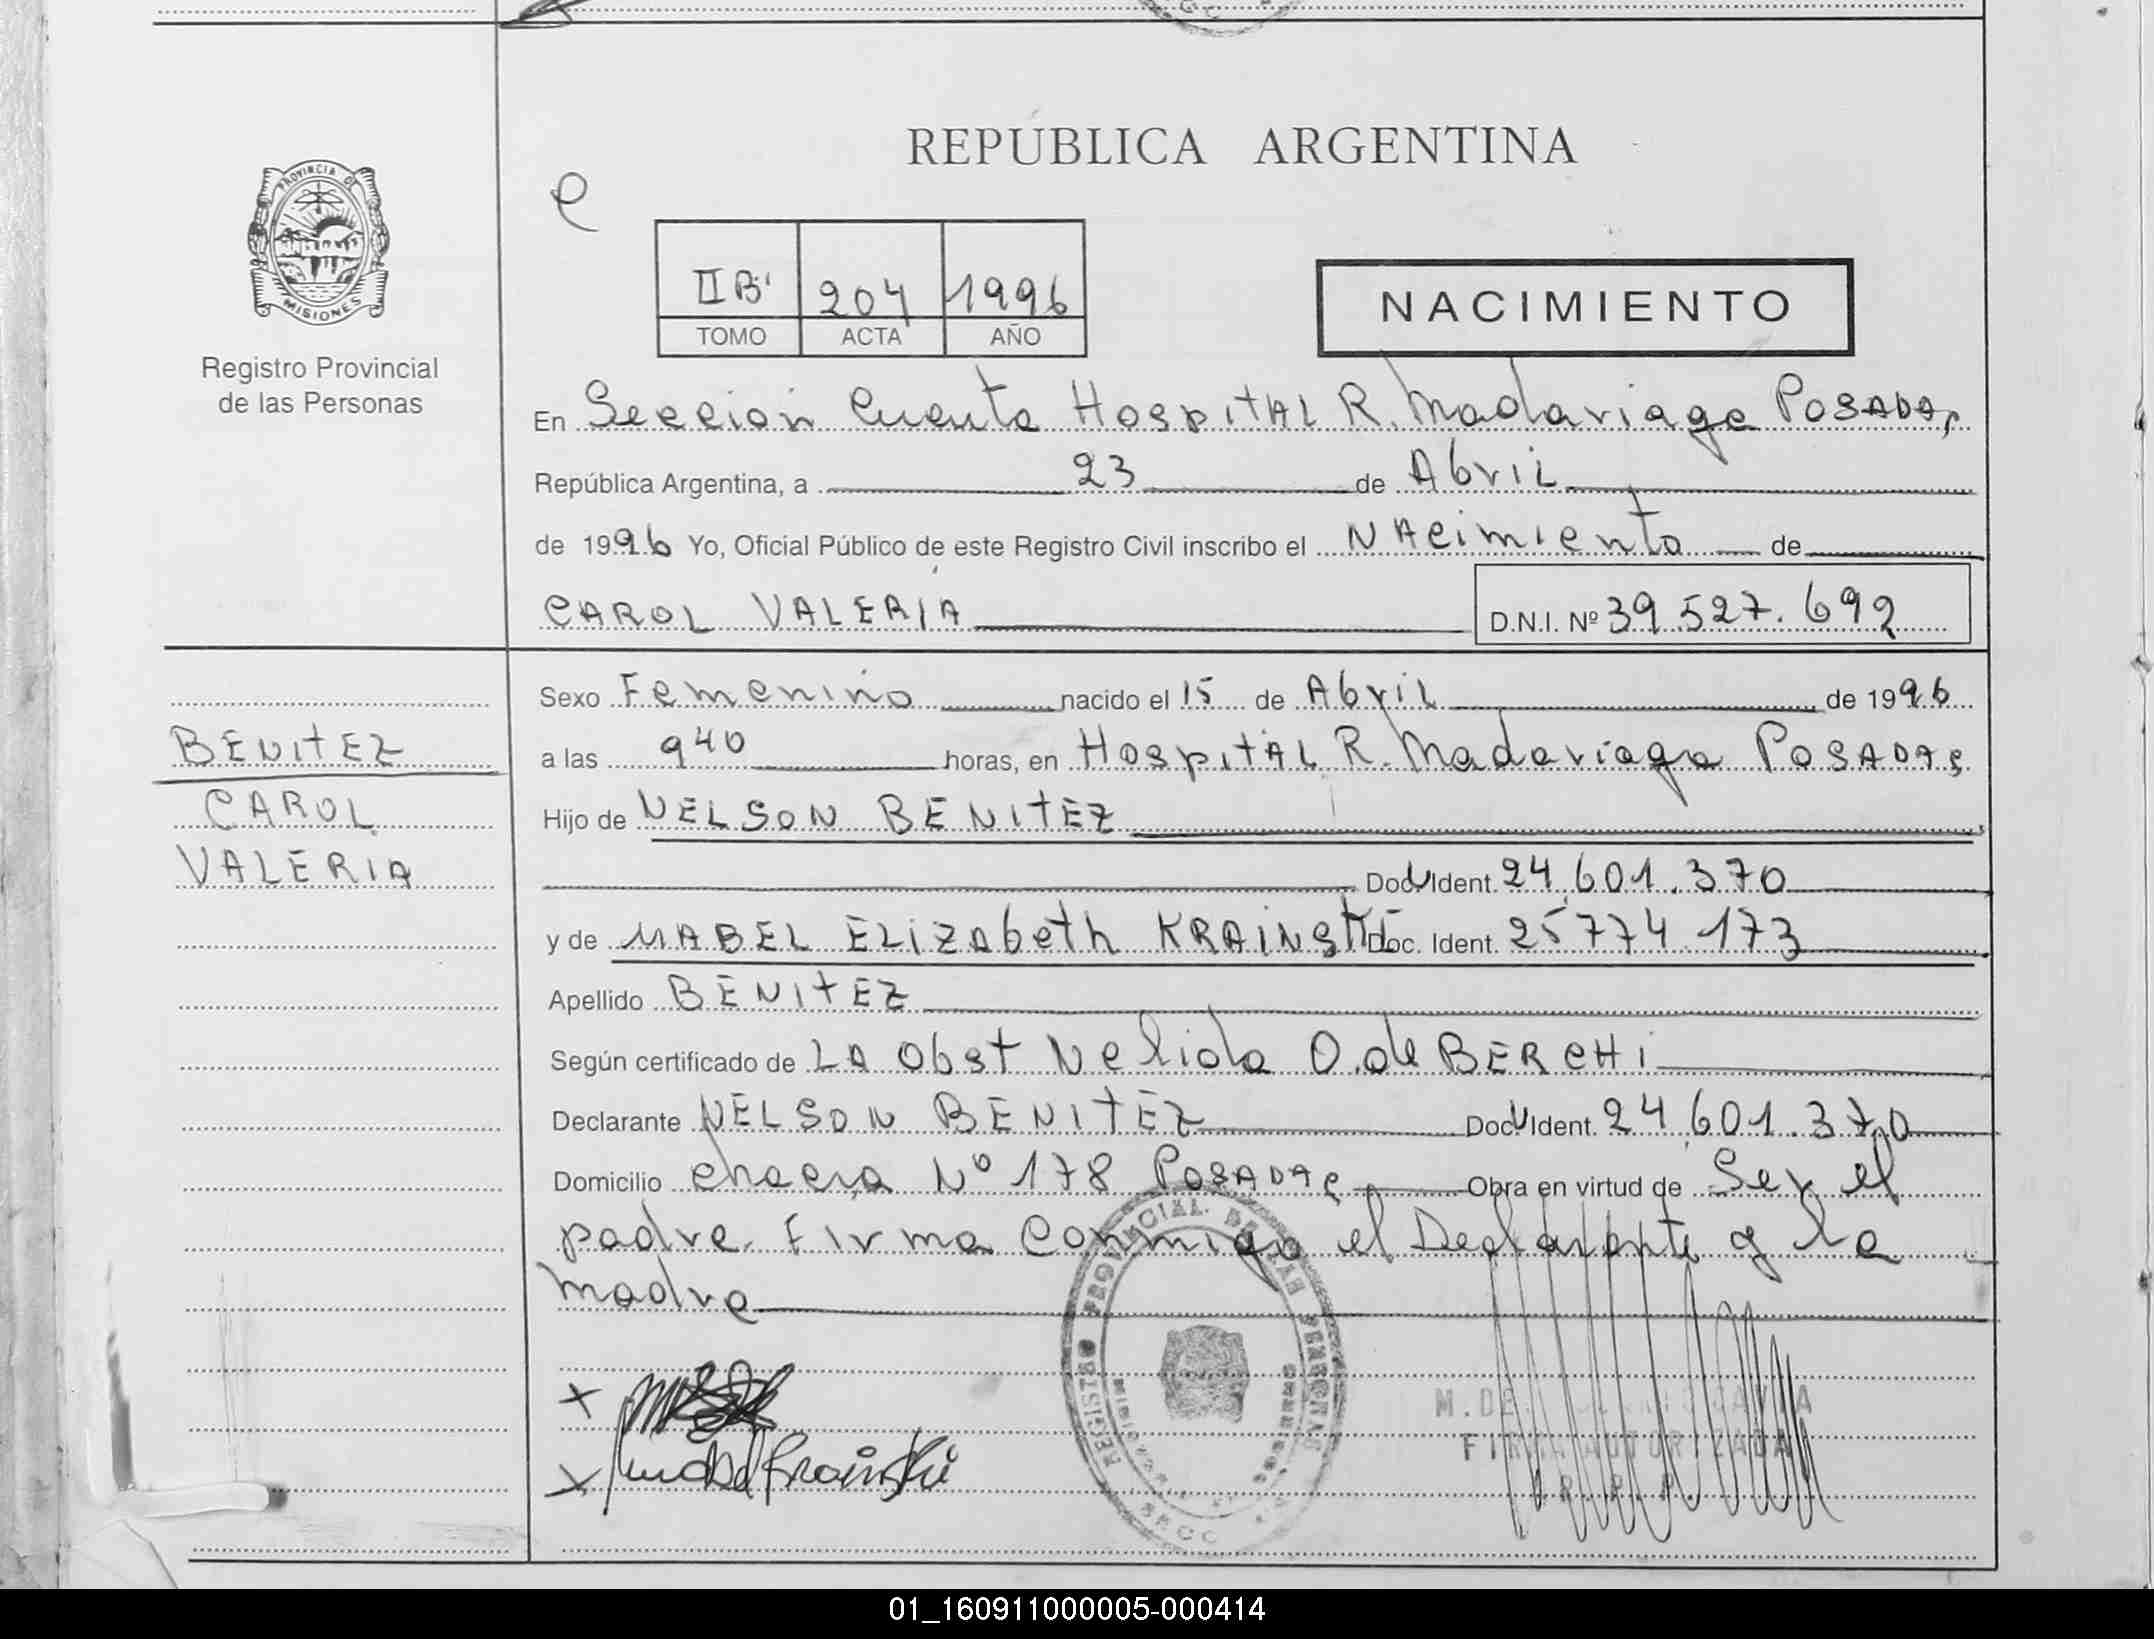 REPUBLICA ARGENTINA
PROVINCIA DE
MISIONES
Registro Provincial
de las Personas
e
II B' 204 1996
TOMO ACTA AÑO
NACIMIENTO
En Seccion Cuenta Hospital R. Madariaga Posadas
República Argentina, a 23 de Abril
de 1996 Yo, Oficial Público de este Registro Civil inscribo el Nacimiento de
CAROL VALERIA D.N.I. Nº 39.527.692
Sexo Femenino nacido el 15 de Abril de 1996
BENITEZ
CAROL
VALERIA
a las 940 horas, en Hospital R. Madariaga Posadas
Hijo de NELSON BENITEZ
Doc. Ident. 24.601.370
y de MABEL ELIZAbeth KRAINSKI Doc. Ident. 25774.173
Apellido BENITEZ
Según certificado de LA Obst Nelida O. de BERCHI
Declarante NELSON BENITEZ Doc. Ident. 24.601.370
Domicilio chacra Nº 178 Posadas Obra en virtud de Ser el
padre. Firma Conmigo el Declarante y la
madre
REGISTRO PROVINCIAL DE LAS PERSONAS
x
x Mabel Krainski
FIRMA AUTORIZADA
01_160911000005-000414